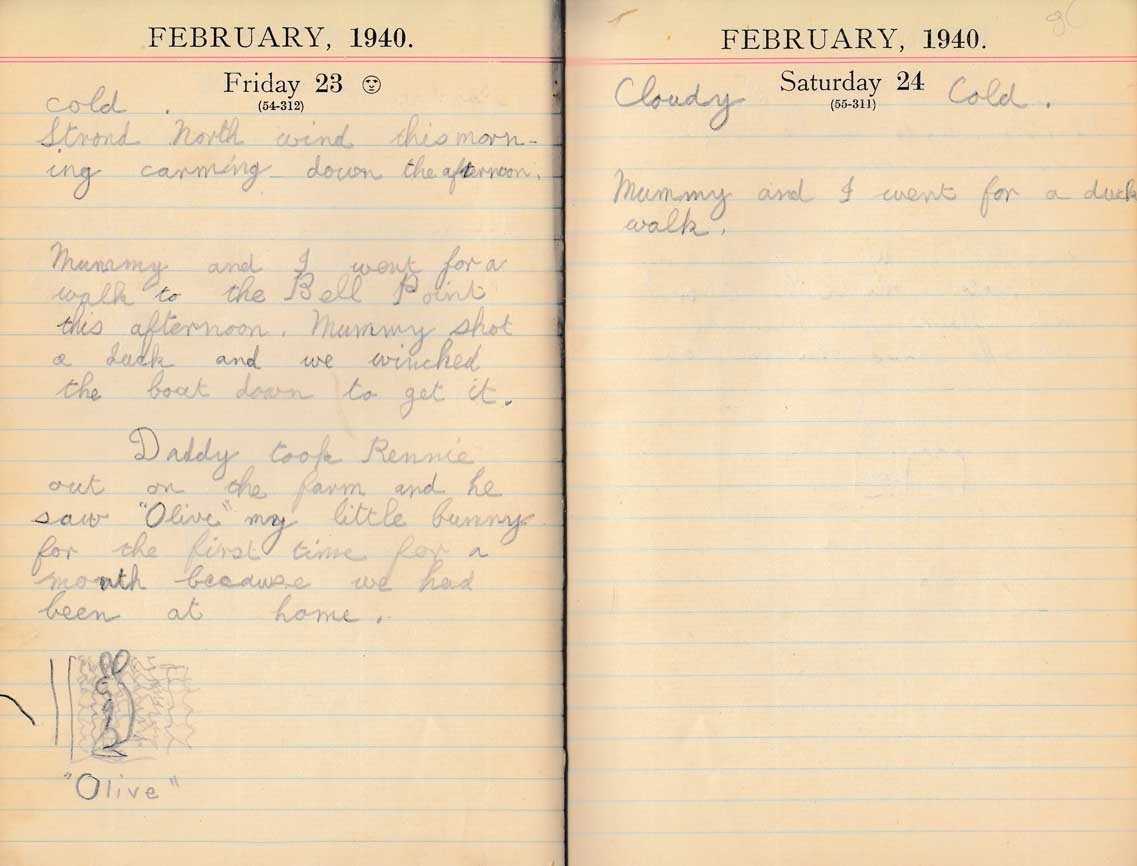 FEBRUARY, 1940.
Friday 23
(54-312)
cold .
Strond North wind this morn-
ing carming down the afternoon.
Mummy and I went for a
walk to the Bell Point
this afternoon. Mummy shot
a duck and we winched
the boat down to get it.
Daddy took Rennie
out on the farm and he
saw "Olive" my little bunny
for the first time for a
month because we had
been at home.
"Olive"
FEBRUARY, 1940.
Saturday 24
(55-311)
Cloudy Cold.
Mummy and I went for a duck
walk.